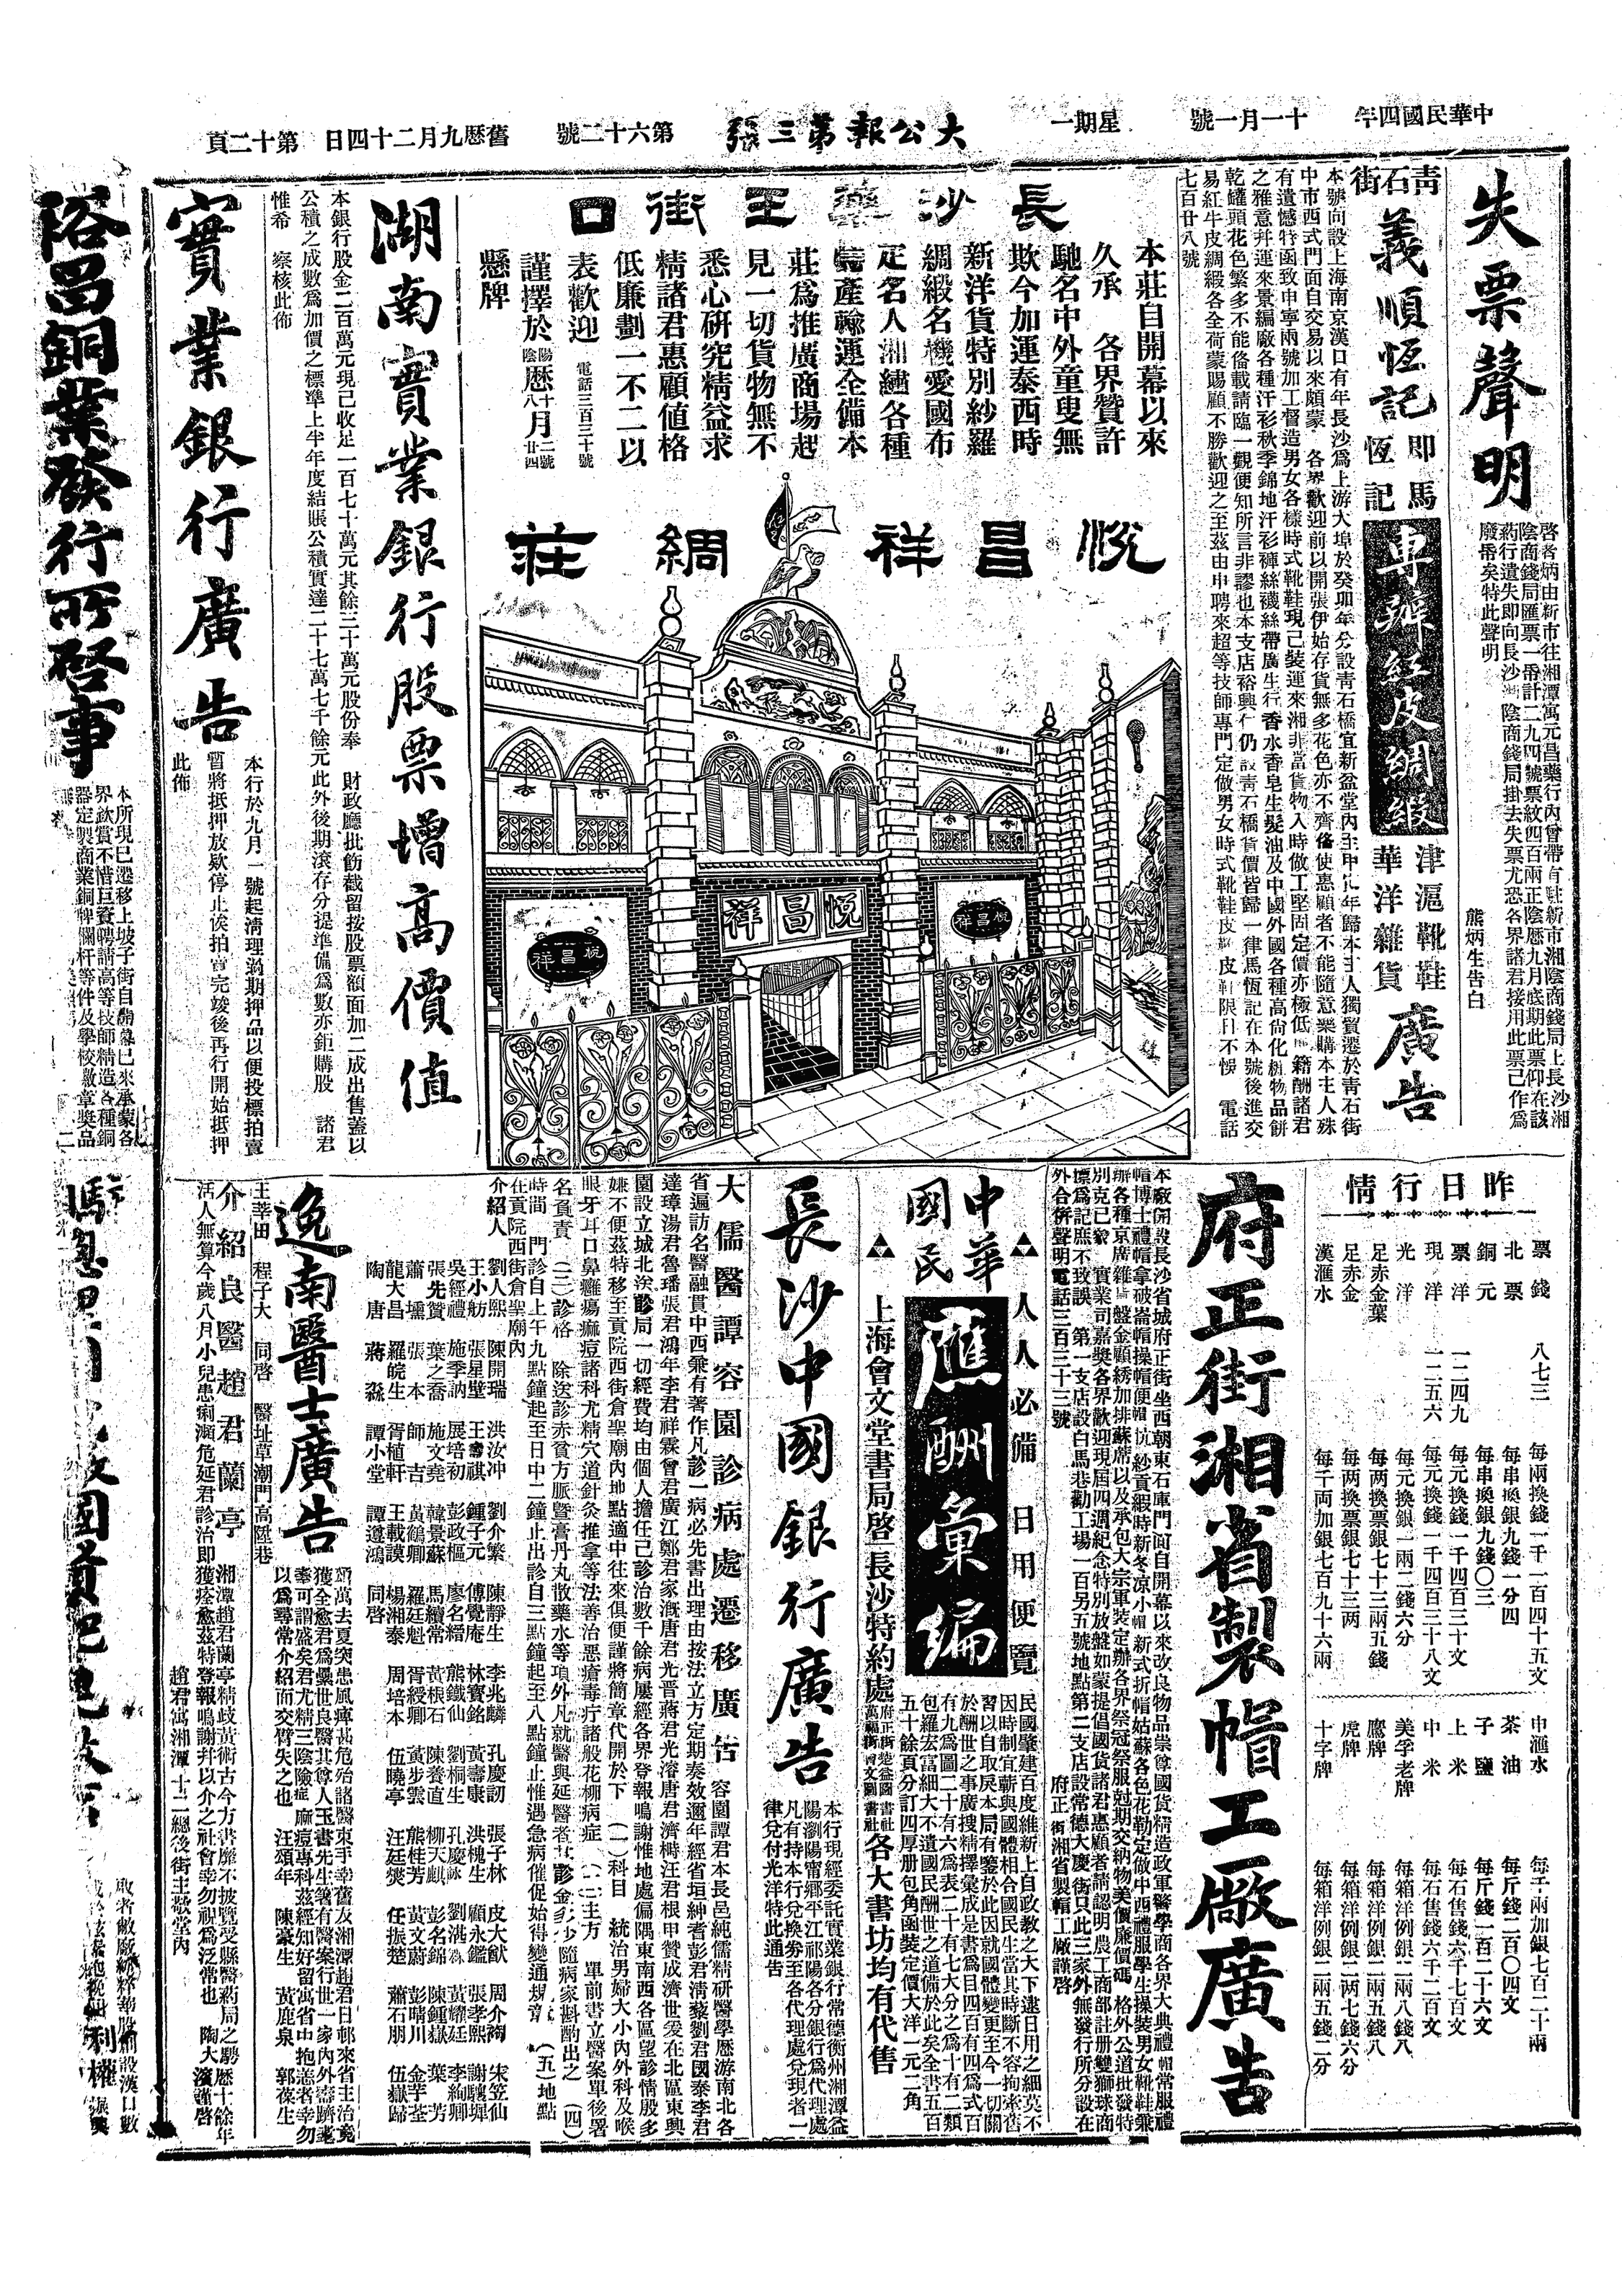 中華民國四年
十一月一號
星期一
大公報第三張
第六十二號
舊歷九月二十四日
第十二頁
失票聲明
啓者炳由新市往湘潭萬元昌藥行內曾帶有駐新市湘陰商錢局上長沙湘
陰商錢局匯票一番計二九四號票紋四百兩正陰歷九月底期此票仰在該
藥行遺失即向長沙湘陰商錢局掛去失票尤恐各界諸君接用此票已作爲
廢番矣特此聲明
熊炳生告白
靑石街
義順恆記
即馬
恆記
專辦紅皮綢緞
津滬靴鞋
華洋雜貨
廣告
本號向設上海南京漢口有年長沙爲上游大埠於癸卯年分設靑石橋宜新盆堂內
歸本主人獨貿遷於靑石街
中市西式門面自交易以來頗蒙 各界歡迎前以開張伊始存貨無多花色亦不齊備使惠顧者不能隨意樂購本主人殊
有遺憾特函致申寧兩號加工督造男女各樣時式靴鞋現已裝運來湘非當貨物入時做工堅固定價亦極低
籍酬諸君
之雅意幷運來景綸廠各種汗衫秋季錦地汗衫褲絲襪絲帶廣生行香水香皂生髮油及中國外國各種高尙化粧物品餅
乾罐頭花色繁多不能俻載請臨一觀便知所言非謬也本支店裕興仁仍設靑石橋貨價皆歸一律馬恆記在本號後進交
易紅牛皮綢緞各全荷蒙賜顧不勝歡迎之至茲由申聘來超等技師專門定做男女時式靴鞋皮
限日不悞 電話
七百廿八號
長沙藥王街口
本莊自開幕以來
久承 各界贊許
馳名中外童叟無
欺今加運泰西時
新洋貨特別紗羅
綢緞名機愛國布
疋名人湘繡各種
特產輸運全備本
莊爲推廣商場起
見一切貨物無不
悉心硏究精益求
精諸君惠顧値格
低廉劃一不二以
表歡迎 電話三百三十號
謹擇於
陽歷十月二號
陰歷八月廿四
懸牌
悅昌祥綢莊
悅昌祥
悅昌祥
悅昌祥
湖南實業銀行股票增高價值
本銀行股金二百萬元現已收足一百七十萬元其餘三十萬元股份奉 財政廳批飭截留按股票額面加二成出售蓋以
公積之成數爲加價之標準上半年度結賬公積實達二十七萬七千餘元此外後期滾存分提準備爲數亦鉅購股 諸君
惟希 察核此佈
實業銀行廣告
本行於九月一號起淸理滿期押品以便投標拍賣
暫將抵押放欵停止俟拍賣完竣後再行開始抵押
此佈
裕昌銅業發行所啓事
本所現已遷移上坡子街自開幕已來承蒙各
界欽賞不惜巨資聘請高等技師精造各種銅
器定製商業銅牌欄杆等件及學校徽章奬品
昨日行情
票錢 八七三 每兩換錢一千一百四十五文
北票 每串換銀九錢一分四
銅元 每串換銀九錢〇三
票洋 一二四九 每元換錢一千四百三十文
現洋 一二五六 每元換錢一千四百三十八文
光洋 每元換銀一兩二錢六分
足赤金葉 每兩換票銀七十三兩五錢
足赤金 每两換票銀七十三两
漢滙水 每千両加銀七百九十六兩
申滙水 每千兩加銀七百二十兩
茶油 每斤錢二百〇四文
子鹽 每斤錢一百二十六文
上米 每石售錢六千七百文
中米 每石售錢六千二百文
美孚老牌 每箱洋例銀二兩八錢八
鷹牌 每箱洋例銀二兩五錢八
虎牌 每箱洋例銀二两七錢六分
十字牌 每箱洋例銀二兩五錢二分
府正街湘省製帽工廠廣告
本廠開設長沙省城府正街坐西朝東石庫門面自開幕以來改良物品崇尊國貨精造政軍警學商各界大典禮帽常服禮
帽博士禮帽拿破崙帽操帽便帽杭紗貢緞時新冬凉小帽新式折帽姑蘇各色花勒定做中西禮服學生操裝男女靴鞋兼
辦各種京廣雜
盤金顧綉加排蘇蓆以及承包大宗軍裝定辦各界祭冠祭服尅期交納物美價廉價碼 格外公道批發特
別克己 實業司嘉獎各界歡迎現屆四週紀念特別放盤如蒙提倡國貨諸君惠顧者請認明農工商部註册雙獅球商
標爲記庶不致誤 第一支店設白馬巷勸工場一百另五號地點第二支店設常德大慶街只此三家外無發行所分設在
外合倂聲明電話三百三十三號
府正街湘省製帽工廠謹啓
中華國民
滙酬彙編
人人必備
日用便覽
上海會文堂書局啓
長沙特約處
府正街楚益圖書社
萬福街會文圖書社
各大書坊均有代售
民國肇建百度維新上自政敎之大下逮日用之細莫不
因時制宜蘄與國體相合國民生當其時斷不容拘牽舊
習以自取戾本局有鑒於此因就國體變更至今一切關
於酬世之事廣搜精擇彙成是書爲目四百有四爲式百
有九爲圖二十有六爲表二十有七大分之爲十有二類
包羅宏富細大不遺國民酬世之道備於此矣全書五百
五十餘頁分訂四厚册包角函裝定價大洋一元二角
長沙中國銀行廣告
本行現經委託實業銀行常德衡州湘潭益
陽瀏陽甯鄕平江祁陽各分銀行爲代理處
凡有持本行兌換劵至各代理處兌現者一
律兌付光洋特此通告
大儒醫譚容園診病處遷移廣告
容園譚君本長邑純儒精硏醫學歷游南北各
省遍訪名醫融貫中西兼有著作凡診一病必先書出理由按法立方定期奏效邇年經省垣紳耆彭君淸藜劉君國泰李君
達璋湯君魯璠張君鴻年李君祥霖曾君廣江鄭君家漑唐君光晋蔣君光濬唐君濟㮶汪君根甲贊成濟世爰在北區東興
園設立城北送診局一切經費均由個人擔任已診治數千餘病屢經各界登報鳴謝惟地處偏隅東南西各區望診情殷多
嫌不便茲特移至貢院西街倉聖廟內地點適中往來俱便謹將簡章代開於下 （一）科目 統治男婦大小內外科及喉
眼牙耳口鼻癰瘍痲痘諸科尤精穴道針灸推拿等法善治惡瘡毒疔諸般花棚病症 （二）主方 單前書立醫案單後署
名負責 （三）診格 除送診赤貧方脈曁膏丹丸散藥水等項外凡就醫與延醫者其診金多少隨病家斟酌出之 （四）
時間 門診自上午九點鐘起至日中二鐘止出診自三點鐘起至八點鐘止惟遇急病催促始得變通規章 （五）地點
在貢院西街倉聖廟內
介紹人
劉人熙 陳開瑞 洪汝冲 劉介繁 陳靜生 李兆麟 孔慶訒 張子林 皮大猷 周介裪 宋笠仙
王小舫 張星璧 王壽祺 鍾子元 傅覺庵 林寶銘 黃壽康 洪槐生 顧永鑑 張孝熙 謝驤墀
吳經禮 施季訥 展培初 彭政樞 廖名縉 熊鐵仙 劉桐生 孔慶詠 劉澔
黃耀廷 李絢卿
張先贊 葉之喬 施文堯 韓景蘇 馬續常 黃根石 陳養直 柳天麒 彭名錦 陳鍾嶽 葉芳
蕭壎 張本 師吉 黃鶴卿 羅廷魁 胥綬卿 黃步雲 熊桂芳 黃文蔚 彭晴川 金芋荃
龍大昌 羅皖生 胥植軒 王載謨 楊湘泰 周培本 伍曉亭 汪廷燮 任振楚 蕭石朋 伍嶽歸
陶唐 蔣淼 譚小堂 譚遵鴻 同啓
逸南醫士廣告
頌萬去夏突患風瘅甚危殆諸醫束手幸舊友湘潭趙君日邨來省主治竟
獲全愈君爲纍世良醫其尊人玉書先生箸有醫案行世一家內外壽躋耄
耋可謂盛矣君尤精三陰險症痲痘專科茲經知好留寓省中抱恙者幸勿
以爲尋常介紹而交臂失之也 汪頌年 陳豪生 黃鹿泉 郭葆生
王莘田 程子大 同啓 醫址草潮門高陞巷
介紹良醫趙君蘭亭
湘潭趙君蘭亭精歧黃術古今方書靡不披覽受縣醫葯局之聘歷十餘年
活人無算今歲八月小兒患痢瀕危延君診治即獲痊愈茲特登報鳴謝幷以介之社會幸勿視爲泛常也 陶大濱謹啓
趙君寓湘潭十二總後街主敬堂內